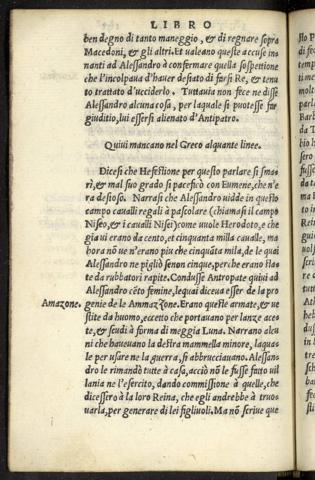 LIBRO
ben degno di tanto maneggio, & di regnare sopra
Macedoni, & gli altri. Et valeano queste accuse in-
nanti ad Alessandro à confermare quella sospettione
che l'incolpaua d'hauer desiato di farsi Re, & tenu
to trattato d'vcciderlo. Tuttauia non fece ne disse
Alessandro alcuna cosa, per laquale si puotesse far
giuditio, lui essersi alienato d'Antipatro.
Quiui mancano nel Greco alquante linee.
Dicesi che Hefestione per questo parlare si smar
rì, & mal suo grado si pacificò con Eumene, che n'e
ra desioso. Narrasi che Alessandro uidde in questo
campo caualli regali à pascolare (chiamasi il campo
Niseo, & i caualli Nisei) come uuole Herodoto, e che
gia ui erano da cento, et cinquanta milla caualle, ma
hora nō ue n'erano piu che cinquāta mila, de le quai
Alessandro ne pigliò senon cinque, perche erano sta
te da rubbatori rapite. Condusse Antropate quiui ad
Alessandro cēto femine, lequai diceua esser de la pro
Amazone.
genie de le Ammazone. Erano queste armate, & ue
stite da huomo, eccetto che portauano per lanze accet
te, & scudi à forma di meggia Luna. Narrano alcu
ni che haueuano la destra mammella minore, laqua
le per usare ne la guerra, si abbrucciauano. Alessan
dro le rimandò tutte à casa, acciò nō le fusse fatto uil
lania ne l'esercito, dando commissione à quelle, che
dicessero à la loro Reina, che egli andrebbe à truo
uarla, per generare di lei figliuoli. Ma nō scriue que